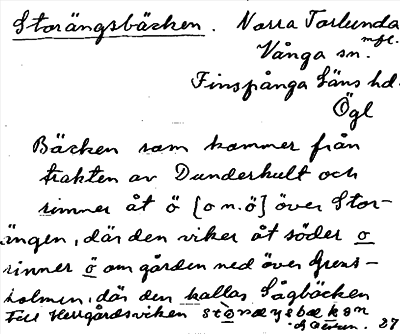 Storängsbäcken. Norra Torlunda
mfl.
Vånga sn.
Finspånga Läns hd.
Ögl
Bäcken som kommer från
trakten av Dunderhult och
rinner åt ö [o n. ö] över Stor-
ängen, där den viker åt söder o
rinner ö om gården ned över Grens-
holmen, där den kallas Sågbäcken
Till Herrgårdsviken
27